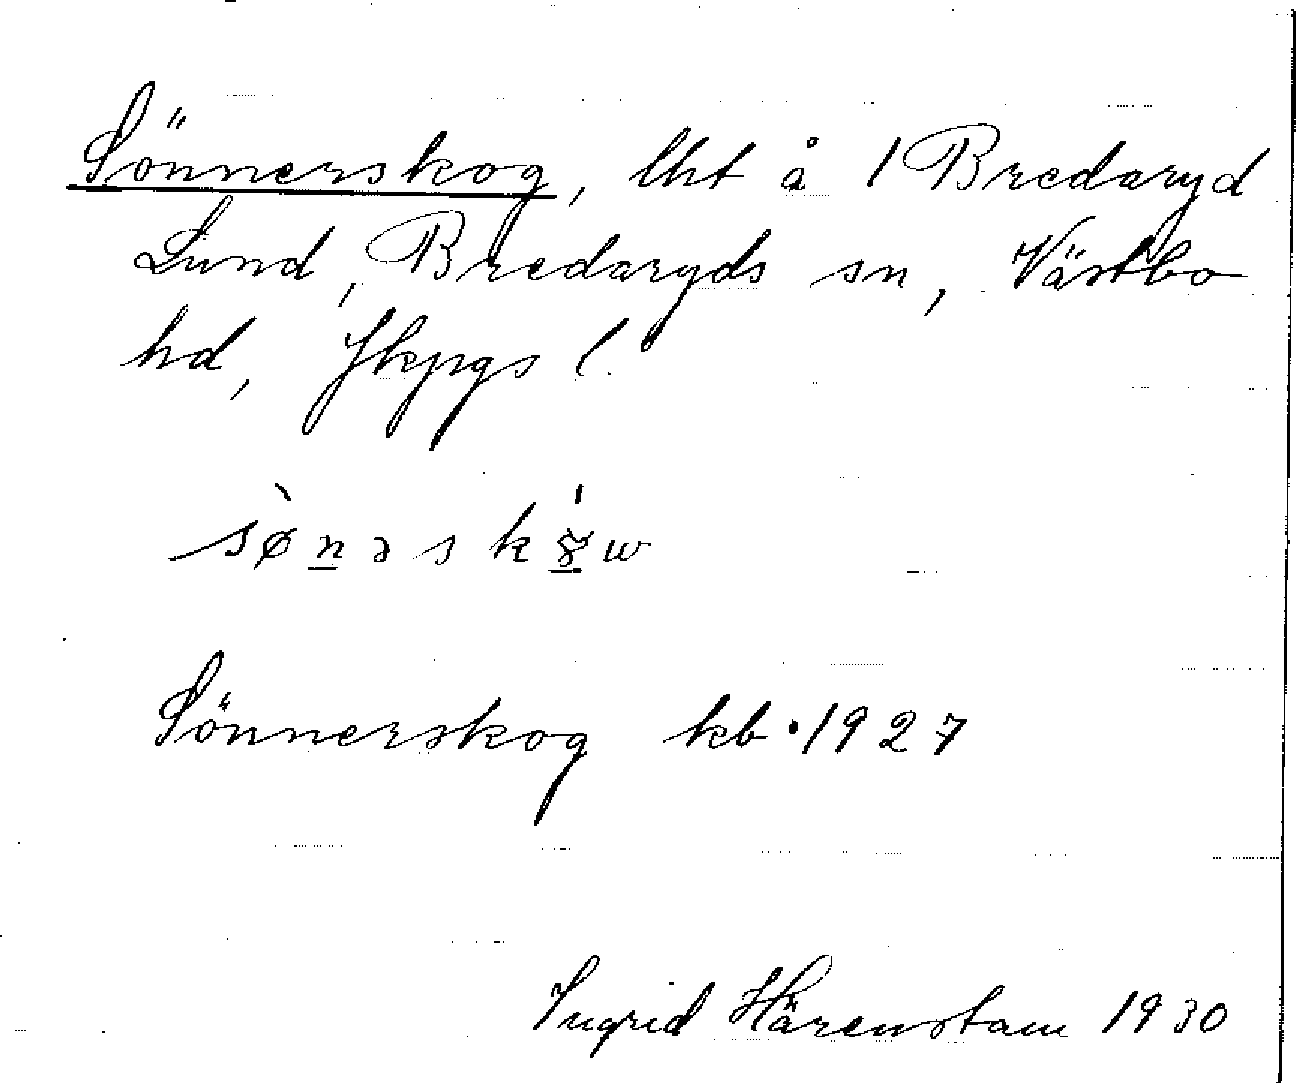 Sönnerskog, lht å 1 Bredaryd
Lund, Bredaryds sn, Västbo
hd, Jkpgs l.
Sönnerskog kb. 1927
Ingrid Härenstam 1930